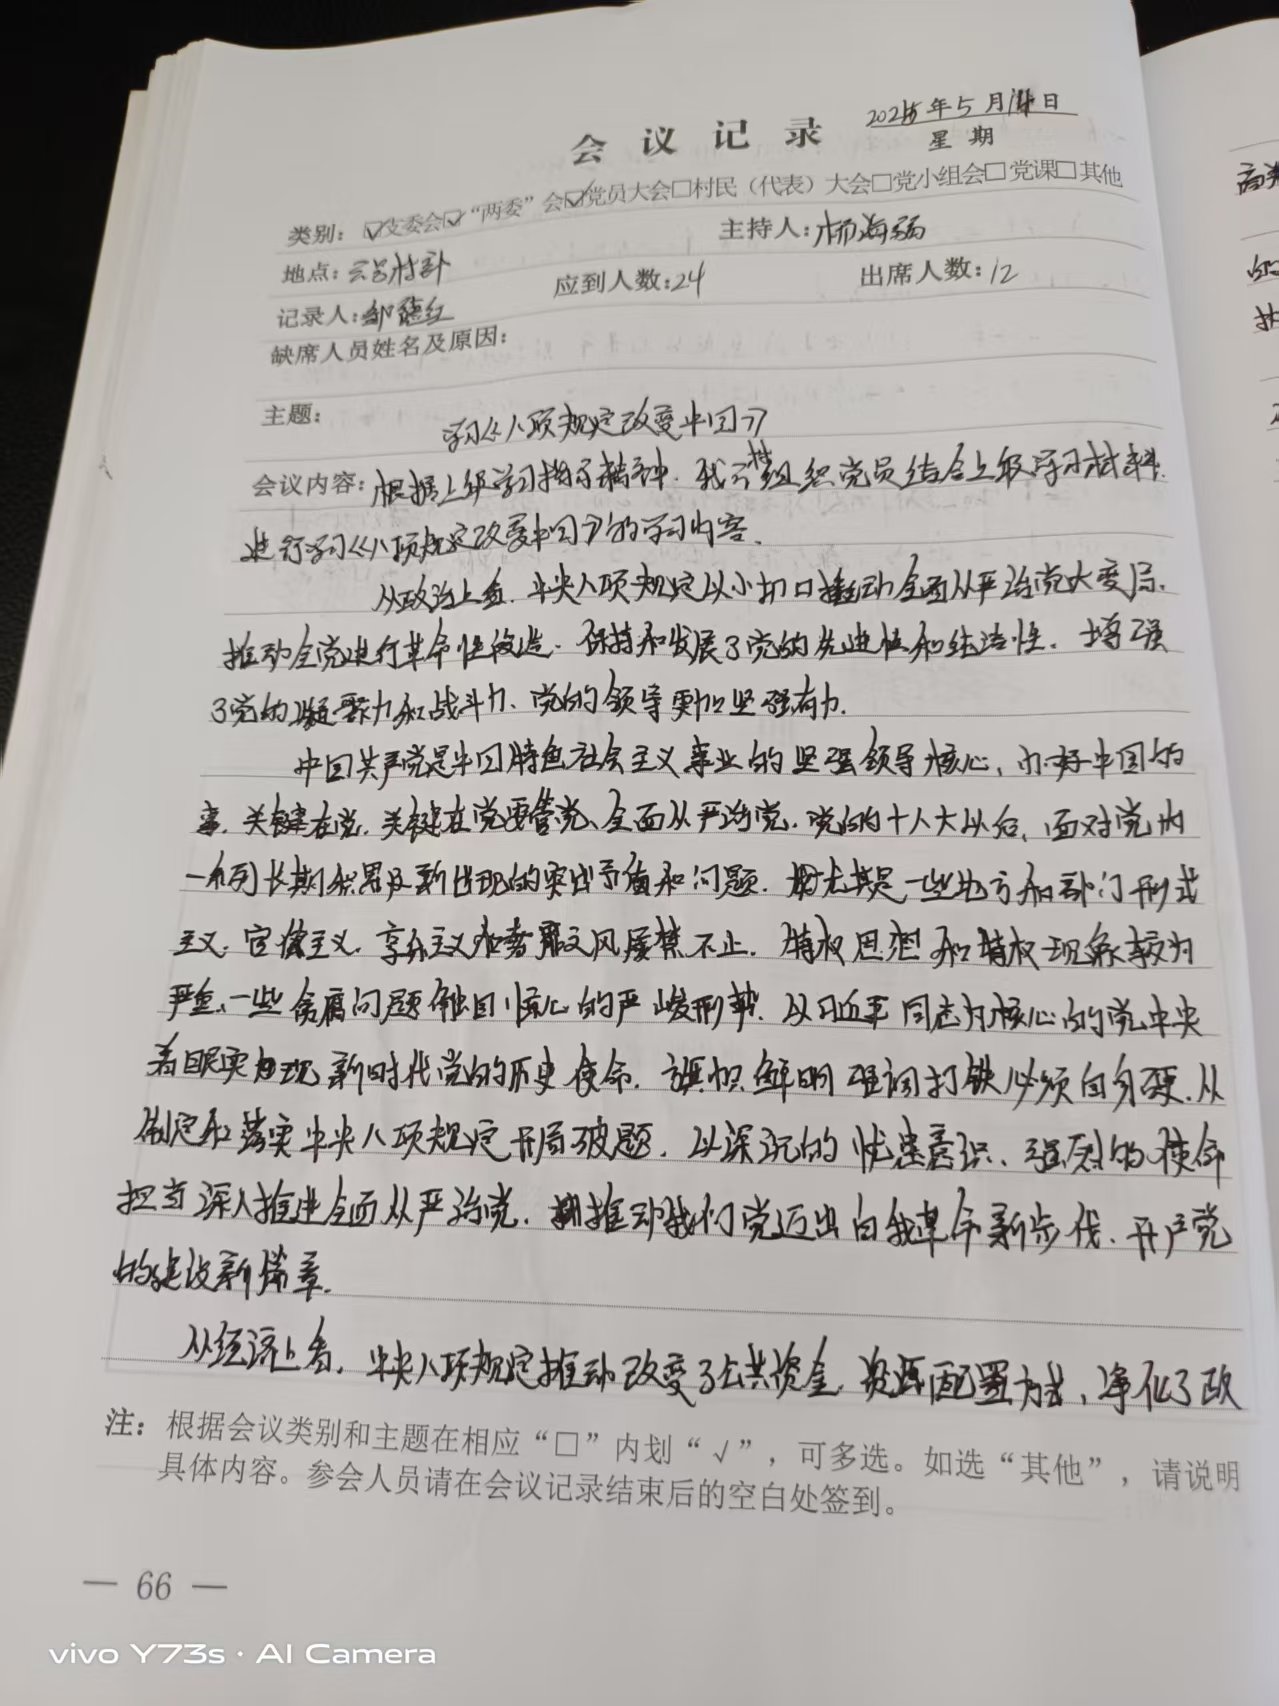 会议记录
2025年5月14日
星期
类别：☑支委会☑“两委”会☑党员大会□村民（代表）大会□党小组会□党课□其他
主持人：杨海
地点：吕村
应到人数：24
出席人数：12
记录人：邹德红
缺席人员姓名及原因：
主题：
学习《八项规定改变中国》
会议内容：根据上级学习指示精神．我村组织党员结合上级学习材料．
进行学习《八项规定改变中国》的学习内容．
从政治上看．中央八项规定以小切口推动全面从严治党大变局．
推动全党进行革命性锻造．保持和发展了党的先进性和纯洁性．增强
了党的凝聚力和战斗力、党的领导更加坚强有力．
中国共产党是中国特色社会主义事业的坚强领导核心，办好中国的
事．关键在党．关键在党要管党、全面从严治党．党的十八大以后，面对党内
一系列长期积累及新出现的突出矛盾和问题．尤其是一些地方和部门形式
主义．官僚主义．享乐主义和奢靡之风屡禁不止．特权思想和特权现象较为
严重、一些贪腐问题触目惊心的严峻形势．以习近平同志为核心的党中央
着眼实现新时代党的历史使命．旗帜鲜明强调打铁必须自身硬．从
制定和落实中央八项规定开局破题．以深沉的忧患意识、强烈的使命
担当深入推进全面从严治党．推动我们党迈出自我革命新步伐．开产党
的建设新篇章．
从经济上看．中央八项规定推动改变了公共资金．资源配置方式，净化了政
注：根据会议类别和主题在相应“□”内划“√”，可多选。如选“其他”，请说明
具体内容。参会人员请在会议记录结束后的空白处签到。
— 66 —
vivo Y73s · AI Camera